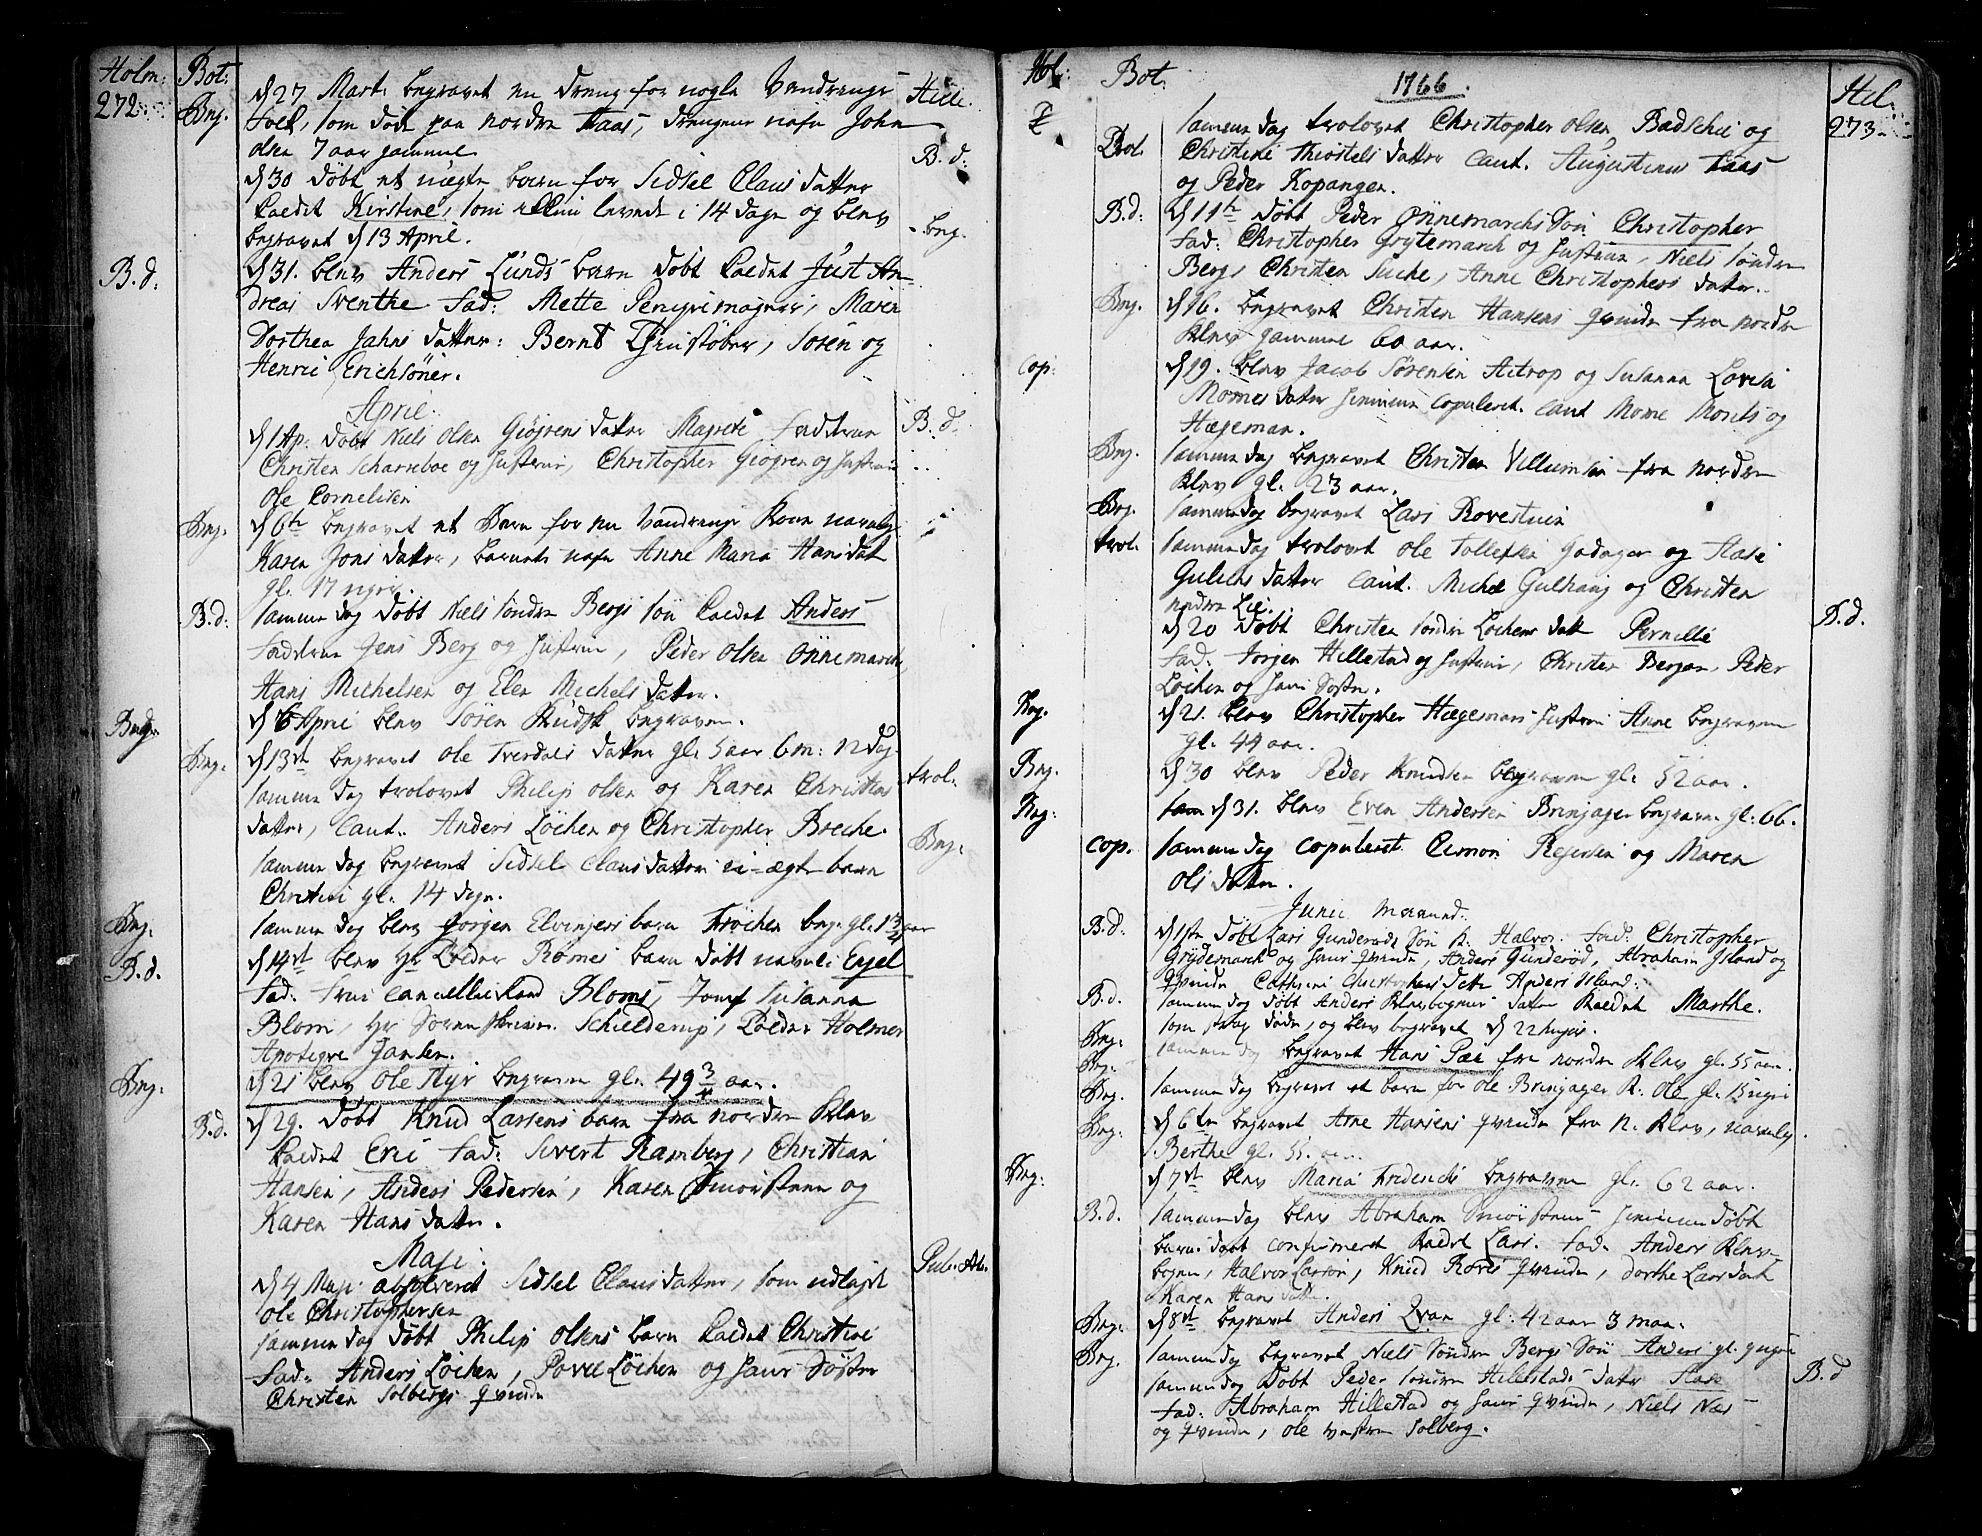 Holm: Bot: Helle.
272.
Beg. d 27 Mart. begravet en dreng for nogle Vandrings
folk, som døde paa nordre Taas, drengens nafn John
olsen 7 aar gammel
B.d: d 30 døbt et uægte barn for Sidsel Claus datter
kaldet Kirstine, som levede i 14 dage og blev
begravet d 13 April. beg.
B.d: d 31. blev Anders Lunds barn døbt kaldet Just An-
dreas Sventhe fad: Mette, Maren
Dorthea Jahns datter: Bernt, Søren og
Henric Erichsöner.
April:
B.d. d 1 Ap: døbt Niels olsen Giögrens datter Magrete fadderne
Christen Scharreboe og hustrue, Christopher Giögren og hustrue
Ole Cornelisen
Beg. d 6te begravet et barn for en Vandrings Kone navnlig
Karen Jons datter, barnets nafn Anne Maria Hansdat
gl. 17 uger.
B.d: samme dag døbt Niels söndre Bergs sön kaldet Anders
fadderne Jens Berg og hustrue, Peder olsen Önnemarch,
Hans Michelsen og Elen Michels datter.
Begr. d 6 April blev Sören begraven.
Beg. d 13de begravet Ole Tverdals datter gl. 5 aar 6 m: 12 dag.
samme dag trolovet Philip olsen og Karen Christens trol.
datter, Caut. Anders Löchen og Christopher Breche.
samme dag begravet Sidsel Claus datters u-ægte barn Beg:
Christine gl. 14 dage.
Beg. samme dag blev Jörgen Elvinjers barn beg. gl. 1 3/4 aar
B.d. d 14de blev Hr Peder Römes barn døbt navnl: Engel
fad. frue Cancellieraad Bloms, Jomf Susanna
Blom, Hr Sorenskriver Schielderup, Peder Holmer
Apoteqve Jansen.
Beg: d 21 blev Ole Styr begraven gl. 49 3/4 aar.
B.d. d 29. døbt Knud Larsens barn fra nordre Klev
kaldet Eric fad: Sivert Ramberg, Christian
Hansen, Anders Pedersen, Karen Smörsteen og
Karen Hans datter.
Maji:
d 4 Maji absolveret Sidsel Claus datter, som udlagde Pub. Ab.
Ole Christophersen
samme dag døbt Philip olsens barn kaldet Christine
fad: Anders Löchen, Povel Löchen og hans Söster
Christen Solbergs qvinde
Hol: Bot. 1766. Hel.
273.
Trol. samme dag trolovet Christopher olsen Badschie og
Christine Thiostels datter Caut. Augustinus Taas
og Peder Kopangen.
B.d: d 11te døbt Peder Önnemarchs Sön Christopher
fad: Christopher Grytemarch og hustrue, Niels söndre
Berg, Christen Suche, Anne Christophers datter.
Beg. d 16. begravet Christen Hansens qvinde fra nordre
Klev gammel 60 aar.
cop: d 19. blev Jacob Sörensen Astrop og Susanna Lovisa
Momes datter hiemme copuleret. Caut Mome Morits og
Hægeman.
Beg. samme dag begravet Christen Villumsen fra nordre
Klev gl. 23 aar.
Beg. samme dag begravet Lars Rovestuen
trol. samme dag trolovet Ole Tollefsen Godager og Aase
Gulichs datter Caut. Michel Gulhaug og Christen
nedre Lie.
d 20 døbt Christen söndre Löchens datt Pernille B.d.
fad. Jörgen Hillestad og hustrue, Christen Bergan, Peder
Löchen og hans Söster.
Beg. d 21. blev Christopher Hægemans hustrue Anne begraven
gl. 44 aar.
Beg. d 30 blev Peder Knudsen begraven gl. 52 aar.
Beg: sam d 31. blev Even Andersen Bringager begraven gl. 66.
cop. samme dag copuleret Cemon Rejersen og Maren
Ols datter.
Junii Maaned.
B.d. d 1ste døbt Lars Gunderøds Sön k. Halvor. fad: Christopher
Grydemarch og hans qvinde, Anders Gunderöd, Abraham Island og
qvinde Cathrine Christophers datter Anders Island.
B.d. samme dag döbt Anders Klevbogners datter kaldet Marthe.
Beg: som strax døde, og blev begravet d 22 hujus.
Beg. samme dag begravet Hans Pæe fra nordre Klev gl. 55 aar.
Beg. samme dag begravet et barn for Ole Bringager k. Ole gl. 15 uger
Beg: d 6te begravet Arne Hansens qvinde fra n. Klev, navnlig
Berthe gl. 55. aar.
Beg: d 7de blev Maria Friderichs begraven gl. 62 aar.
B.d. samme dag blev Abraham Smörsteens hiemme döbt
barns daab confirmeret kaldet Lars. fad. Anders Klev-
bogner, Halvor Larsön, Knud Roves qvinde, Dorthe Lars datt
Karen Hans datter.
Beg: d 8de begravet Anders Qvan gl. 42 aar 3 maan.
Beg. samme dag begravet Niels Söndre Bergs Sön Anders gl. 9 uger
samme dag døbt Peder söndre Hillestads datter Aase B.d
fad: Abraham Hillestad og hans qvinde, Niels Næs
og qvinde, Ole vestre Solberg.